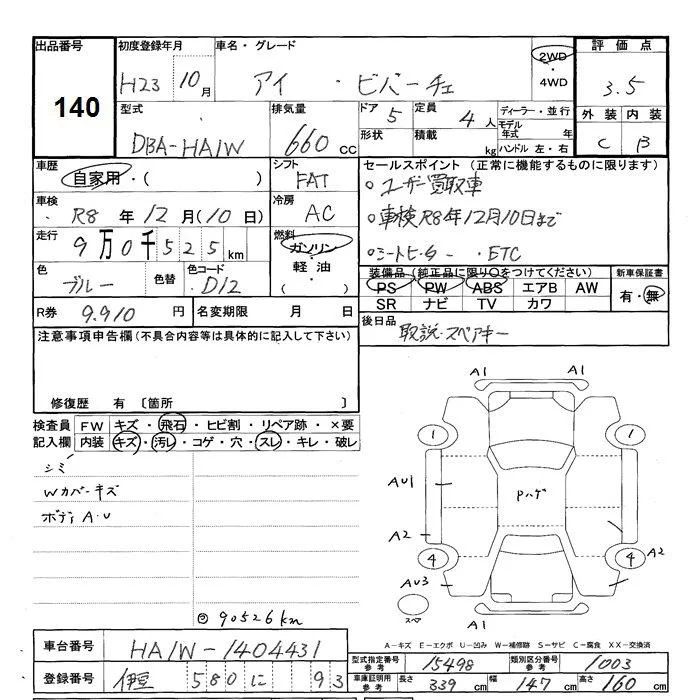 出品番号 初度登録年月 車名・グレード 評価点
140 H23 10月 アイ ・ ビバーチェ 2WD ・ 4WD 3.5
型式 排気量 ドア 5 定員 4人 ディーラー・並行 外装 内装
DBA-HA1W 660cc 形状 積載 kg モデル年式 年 C B
ハンドル 左・右
車歴 シフト セールスポイント (正常に機能するものに限ります)
自家用・( ) FAT ○ユーザー買取車
車検 R8年12月(10日) 冷房 AC ○車検R8年12月10日まで
走行 9万0千525km 燃料 ガソリン・軽油・( ) ○シートヒーター ・ETC
色 ブルー 色替 色コード D12 装備品 (純正品に限り○をつけてください) 新車保証書
PS PW ABS エアB AW 有・無
SR ナビ TV カワ
R券 9.910円 名変期限 月 日 後日品 取説・スペアキー
注意事項申告欄(不具合内容等は具体的に記入して下さい)
修復歴 有 〔箇所 〕
検査員 FW キズ・飛石・ヒビ割・リペア跡・×要
記入欄 内装 キズ・汚レ・コゲ・穴・スレ・キレ・破レ
シミ
Wカバーキズ
ボディA・U
90526km
A1 A1
1 1
AU1 Pハゲ
A2 A2
4 4
AU3
スペア A1
A-キズ E-エクボ U-凹み W-補修跡 S-サビ C-腐食 XX-交換済
車台番号 HA1W-1404431 型式指定番号 参考 15498 類別区分番号 参考 1003
登録番号 580 に 93 車庫証明用 参考 長さ 339cm 幅 147cm 高さ 160cm